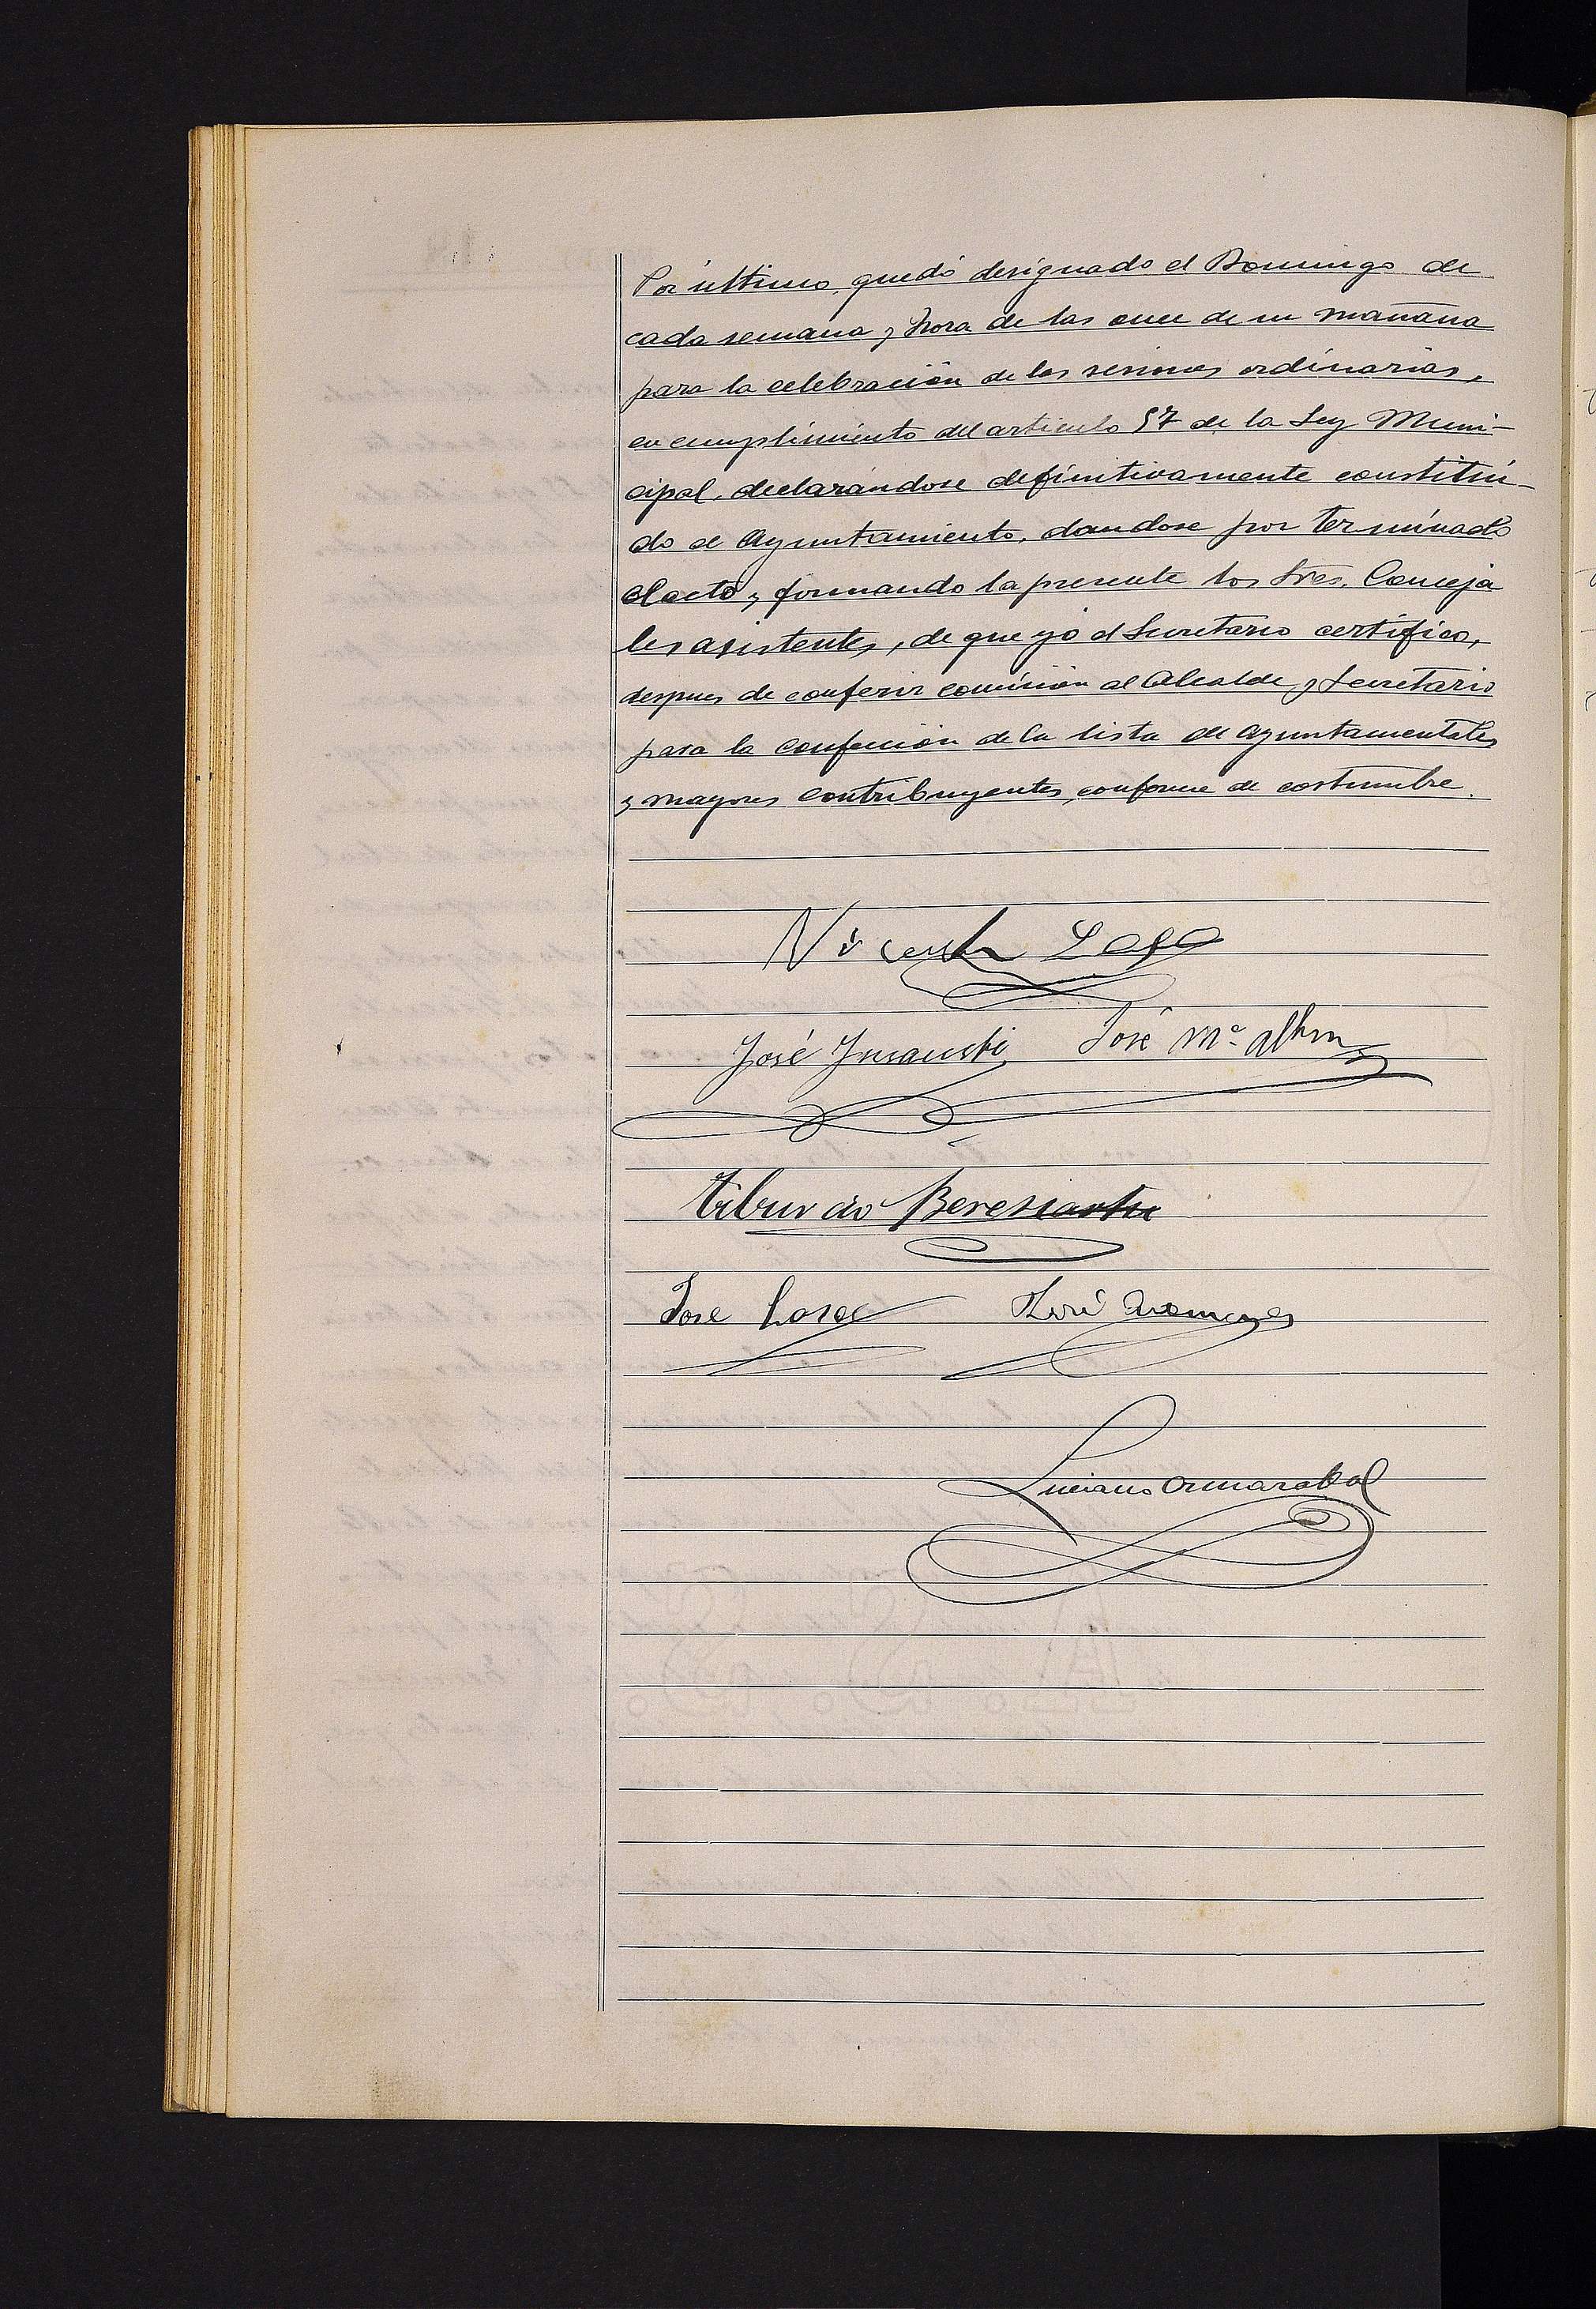 Por último, quedó designado el Domingo de
cada semana y hora de las once de su mañana
para la celebración de las sesiones ordinarias,
en cumplimiento del articulo 57 de la Ley Muni-
cipal, declarándose definitivamente constituí-
do el Ayuntamiento, dandose por terminado
el acto y firmando la presente los Sres. Conceja
les asistentes, de que yo el Secretario certifico,
despues de conferir comisión al Alcalde y Secretario
para la confección de la lista de Ayuntamentales
y mayores contribuyentes, conforme de costumbre.
Vicente Lasa
José Insausti José Mª
Tiburcio Beresiartu
Jose Lasa José
Luciano Ormazabal